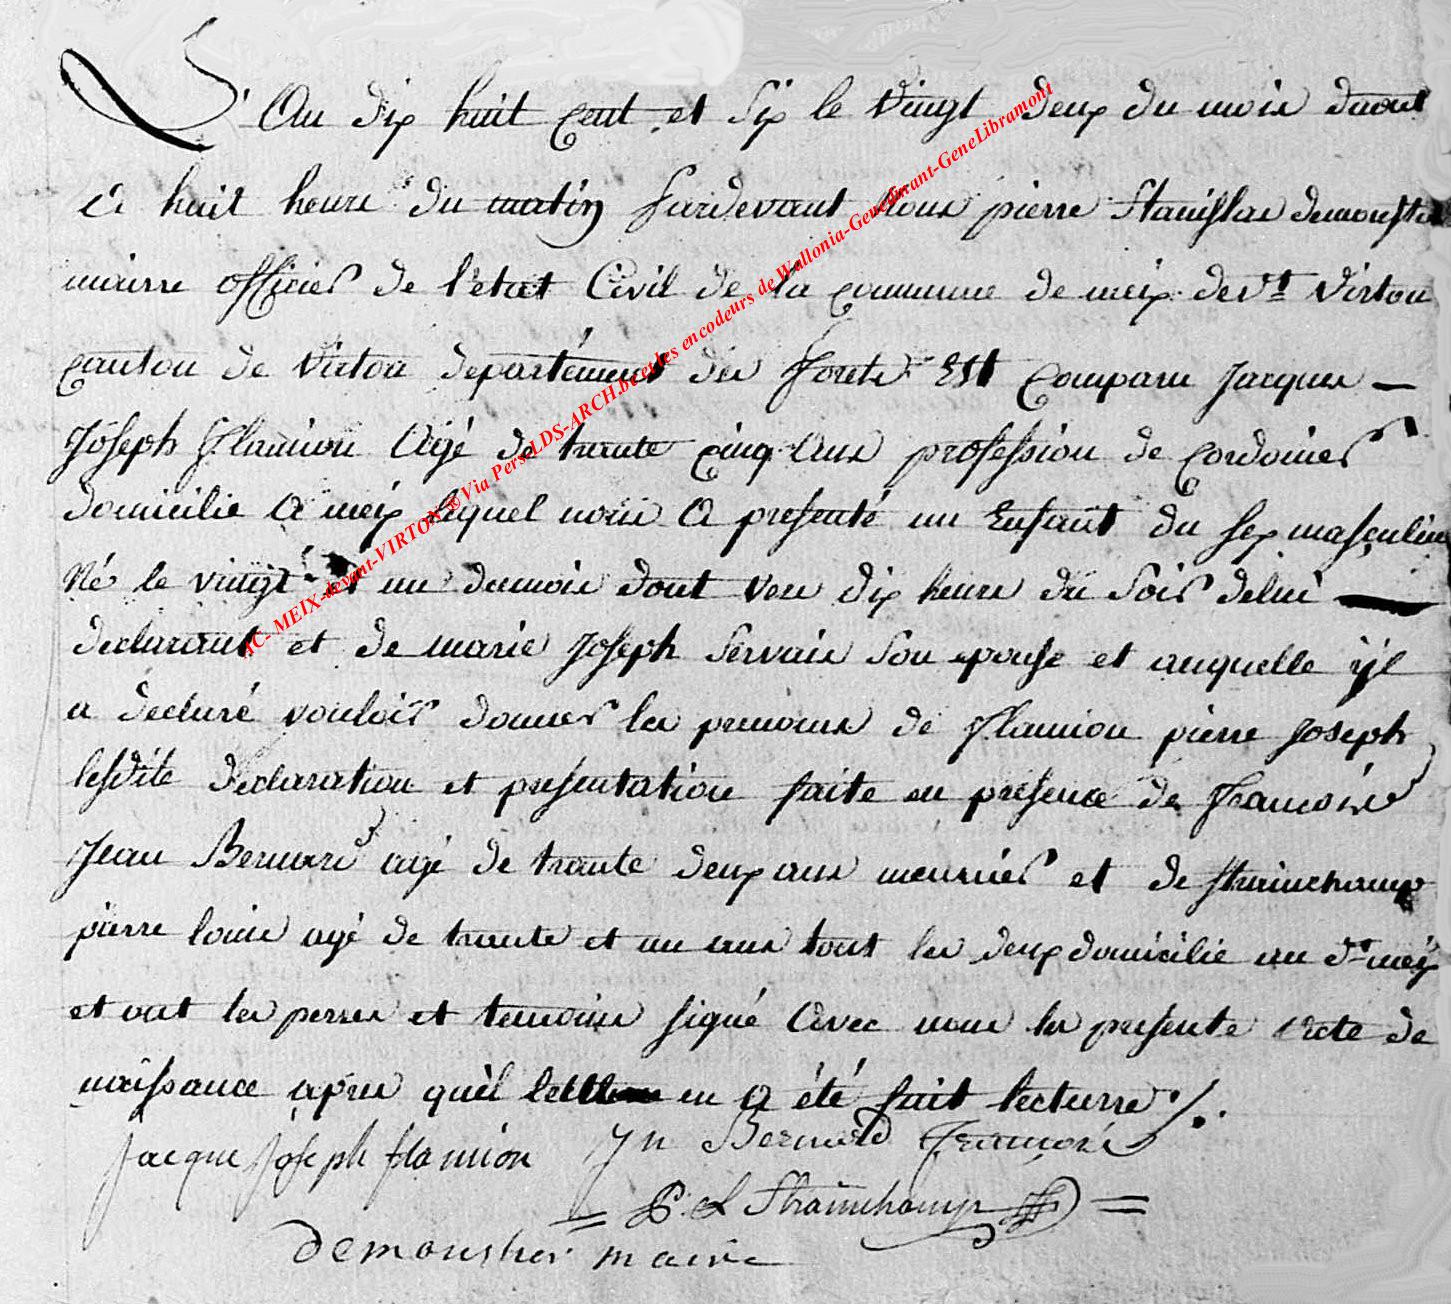 L'An dix huit cent et six le vingt deux du mois daout
à huit heure du matin pardevant nous pierre Stanislas demousther
mairre officier de l'état Civil de la commune de meix dev.t Virton
canton de Virton departément des forets Est comparu jacques —
joseph flamion Agé de trente cinq Ans profession de cordonier
domicilié A meix lequel nous A presenté un Enfant du sex masculin
Né le vingt et un du mois dout vers dix heure du soir de lui
declarant et de marie joseph servais son epouse et auquelle ÿl
a declaré vouloir donner les prenoms de flamion pierre joseph
lesdite declaration et presentation faite en presence de francois
jean Bernard agé de trante deux ans meunier et de strainchamp
pierre louis agé de trante et un ans tout les deux domicilié au d.t meix
et ont les perres et temoins signé Avec nous la presente acte de
naissance apres quèl en A été fait lecturre /.
jacque joseph flamion jn Bernard francois
= P. L Strainchamp =
demousther maire
AC- MEIX-devant-VIRTON ® Via Pers-LDS-ARCH.be et les encodeurs de Wallonia-Genedinant-GeneLibramont